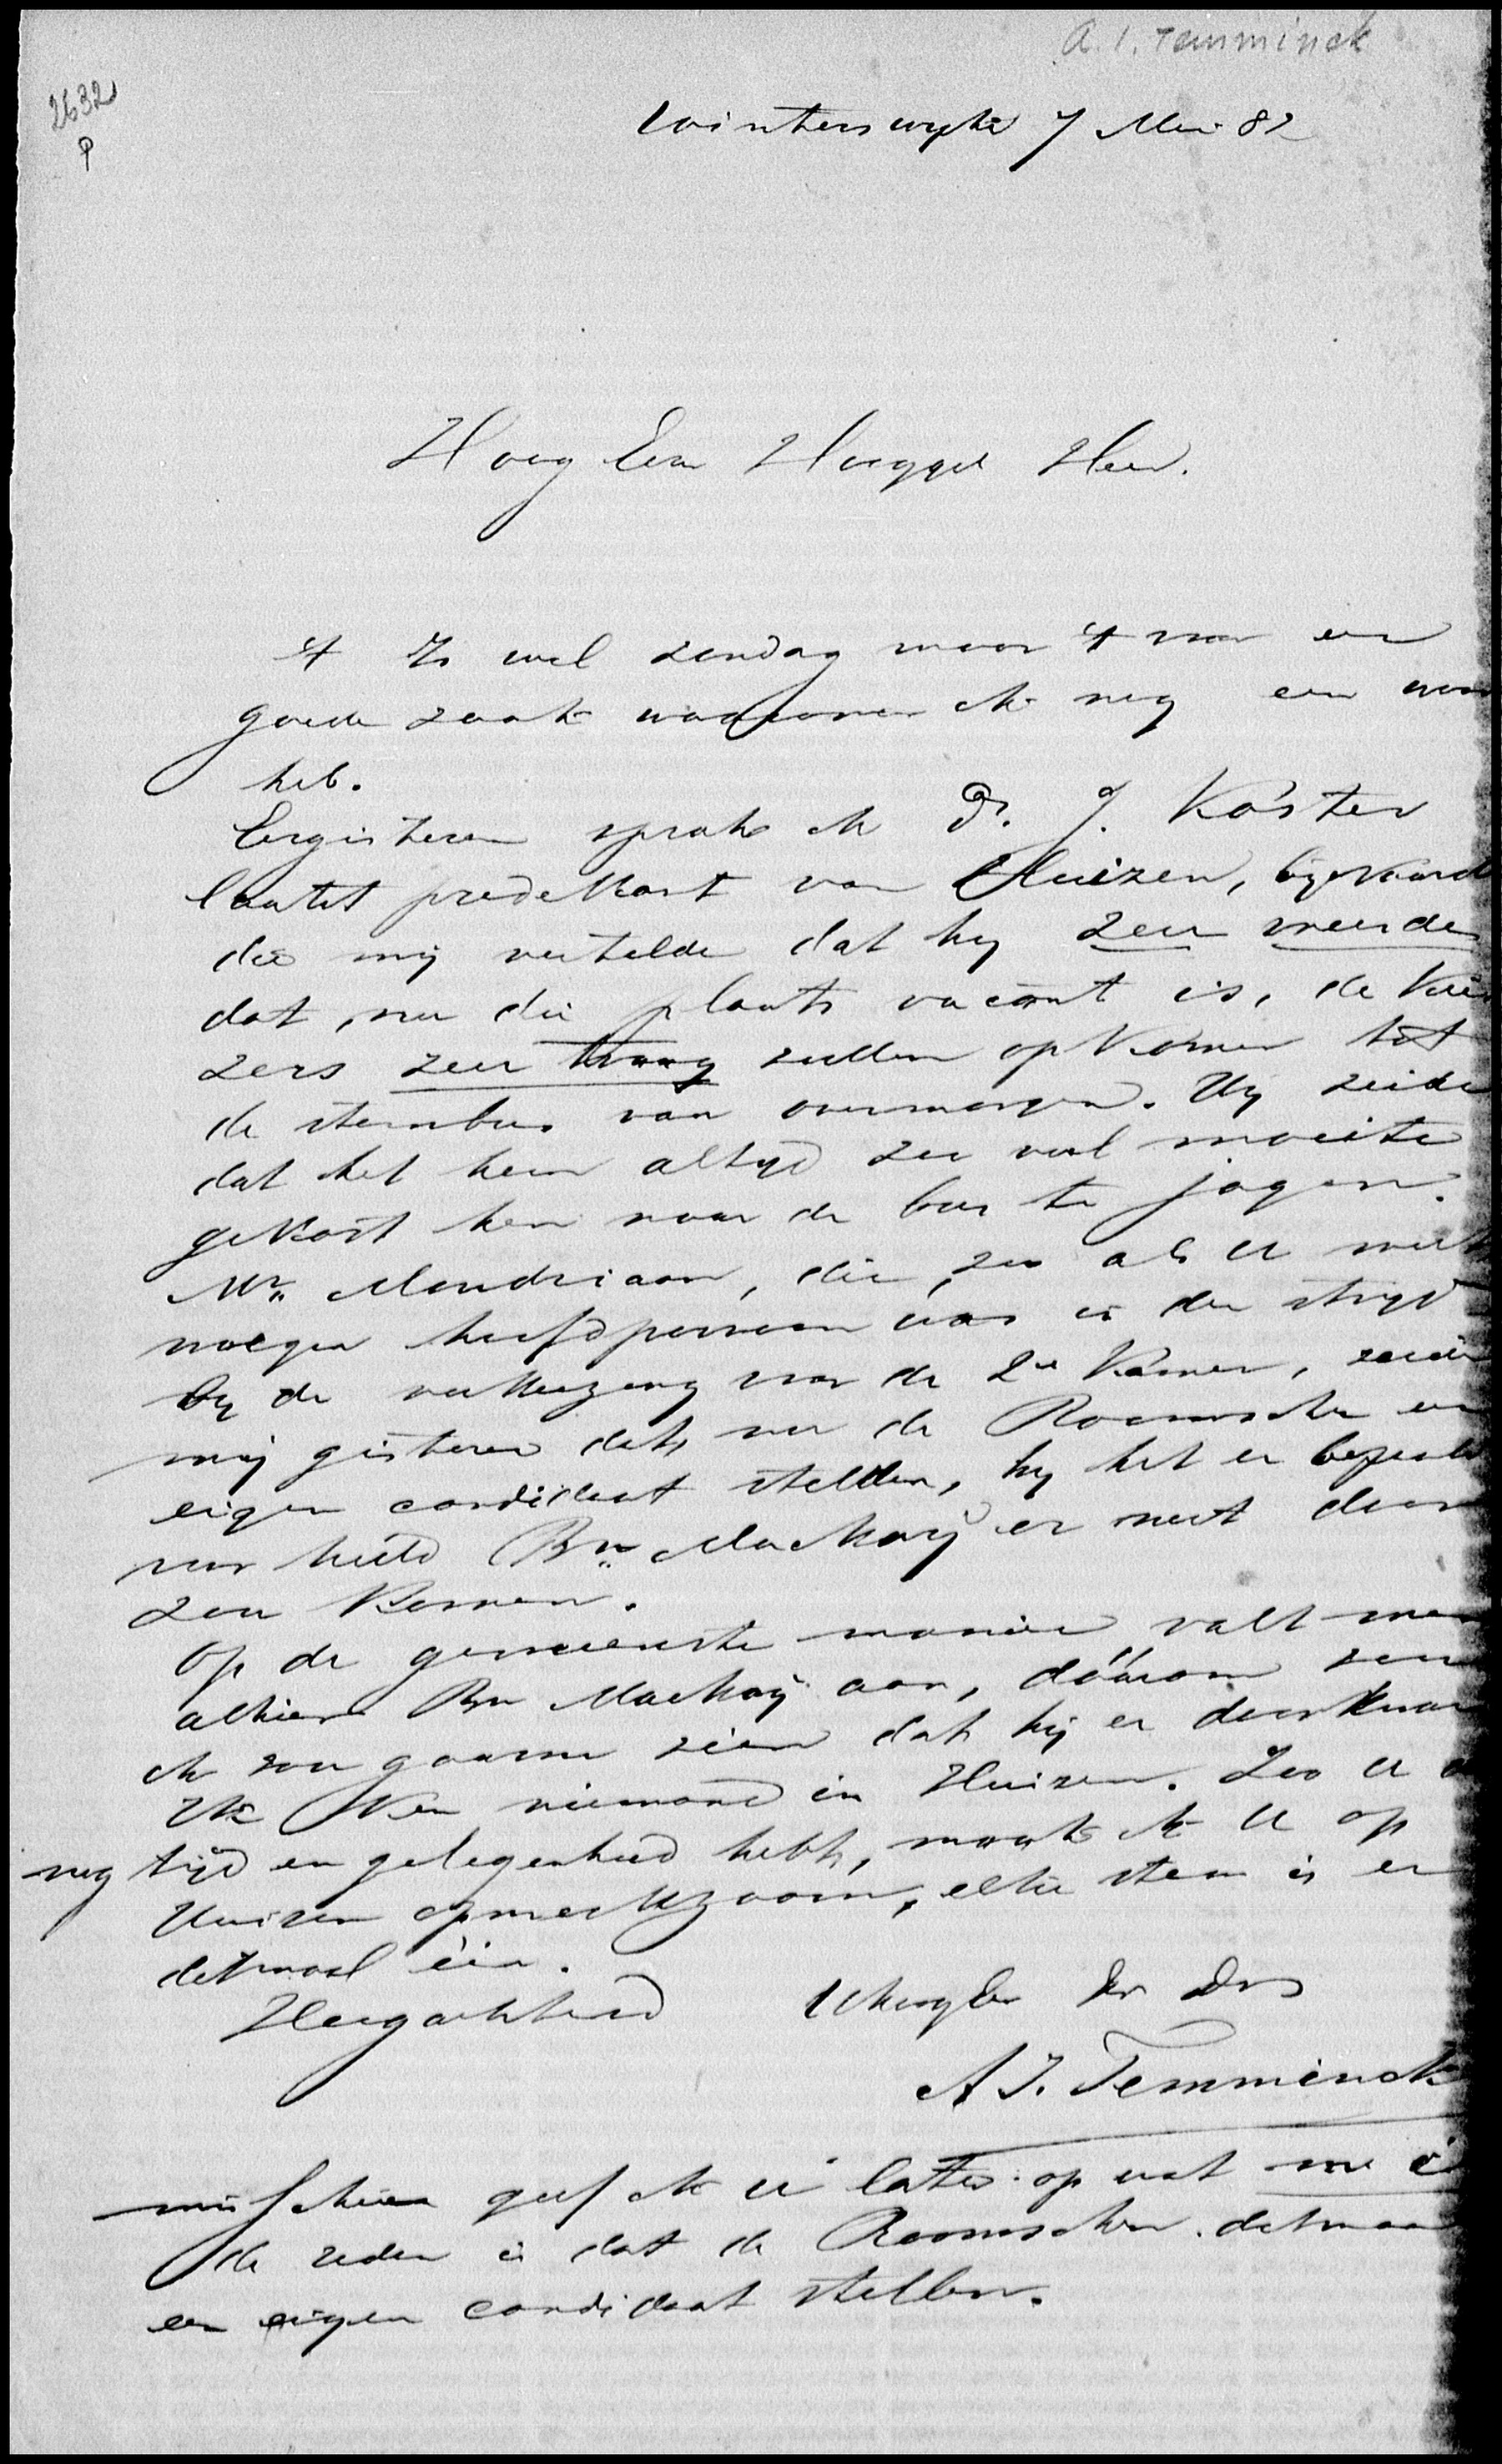 A. J. Temminck
2632
P
Winterswyk 7 Mei 82
Hoog Eerw Hooggel Heer.
't Is wel zondag maar 't voor een
goede zaak waarover ik nog een woord
heb.
Eergisteren sprak ik Ds. J. Köster
laatst predekkant van Huizen, bijNaarden
die mij vertelde dat hij zeer vreesde
dat, nu die plaats vacant is, de kie
zers zeer traag zullen opkomen tot
de stembus van overmorgen. Hij zeide
dat het hem altyd zeer veel moeite
gekost hen naar de bus te jagen.
Mr. Mondriaan, die, zoo als U weet
hoofdpersoon was in den strijd
by de verkiezing voor de 2e Kamer, zeide
mij gisteren dat, nu de Roomschen een
eigen candidaat stelden, hij het er
voor hield Bn. Mackaij er niet door
zou komen.
Op de gemeenste manier valt men
alhier Bn Mackaij aan, dáárom
ik zou gaarne zien dat hij er doorkwam
Ik ken niemand in Huizen. Zoo U
nog tijd en gelegenheid hebt, maak ik U op
Huizen opmerkzaam, elke stem is er
ditmaal één.
Hoogachtend UHoogEw Dw Dnr
A J. Temminck
misschien geef ik U later op wat
de reden is dat de Roomschen ditmaal
een eigen candidaat stellen.